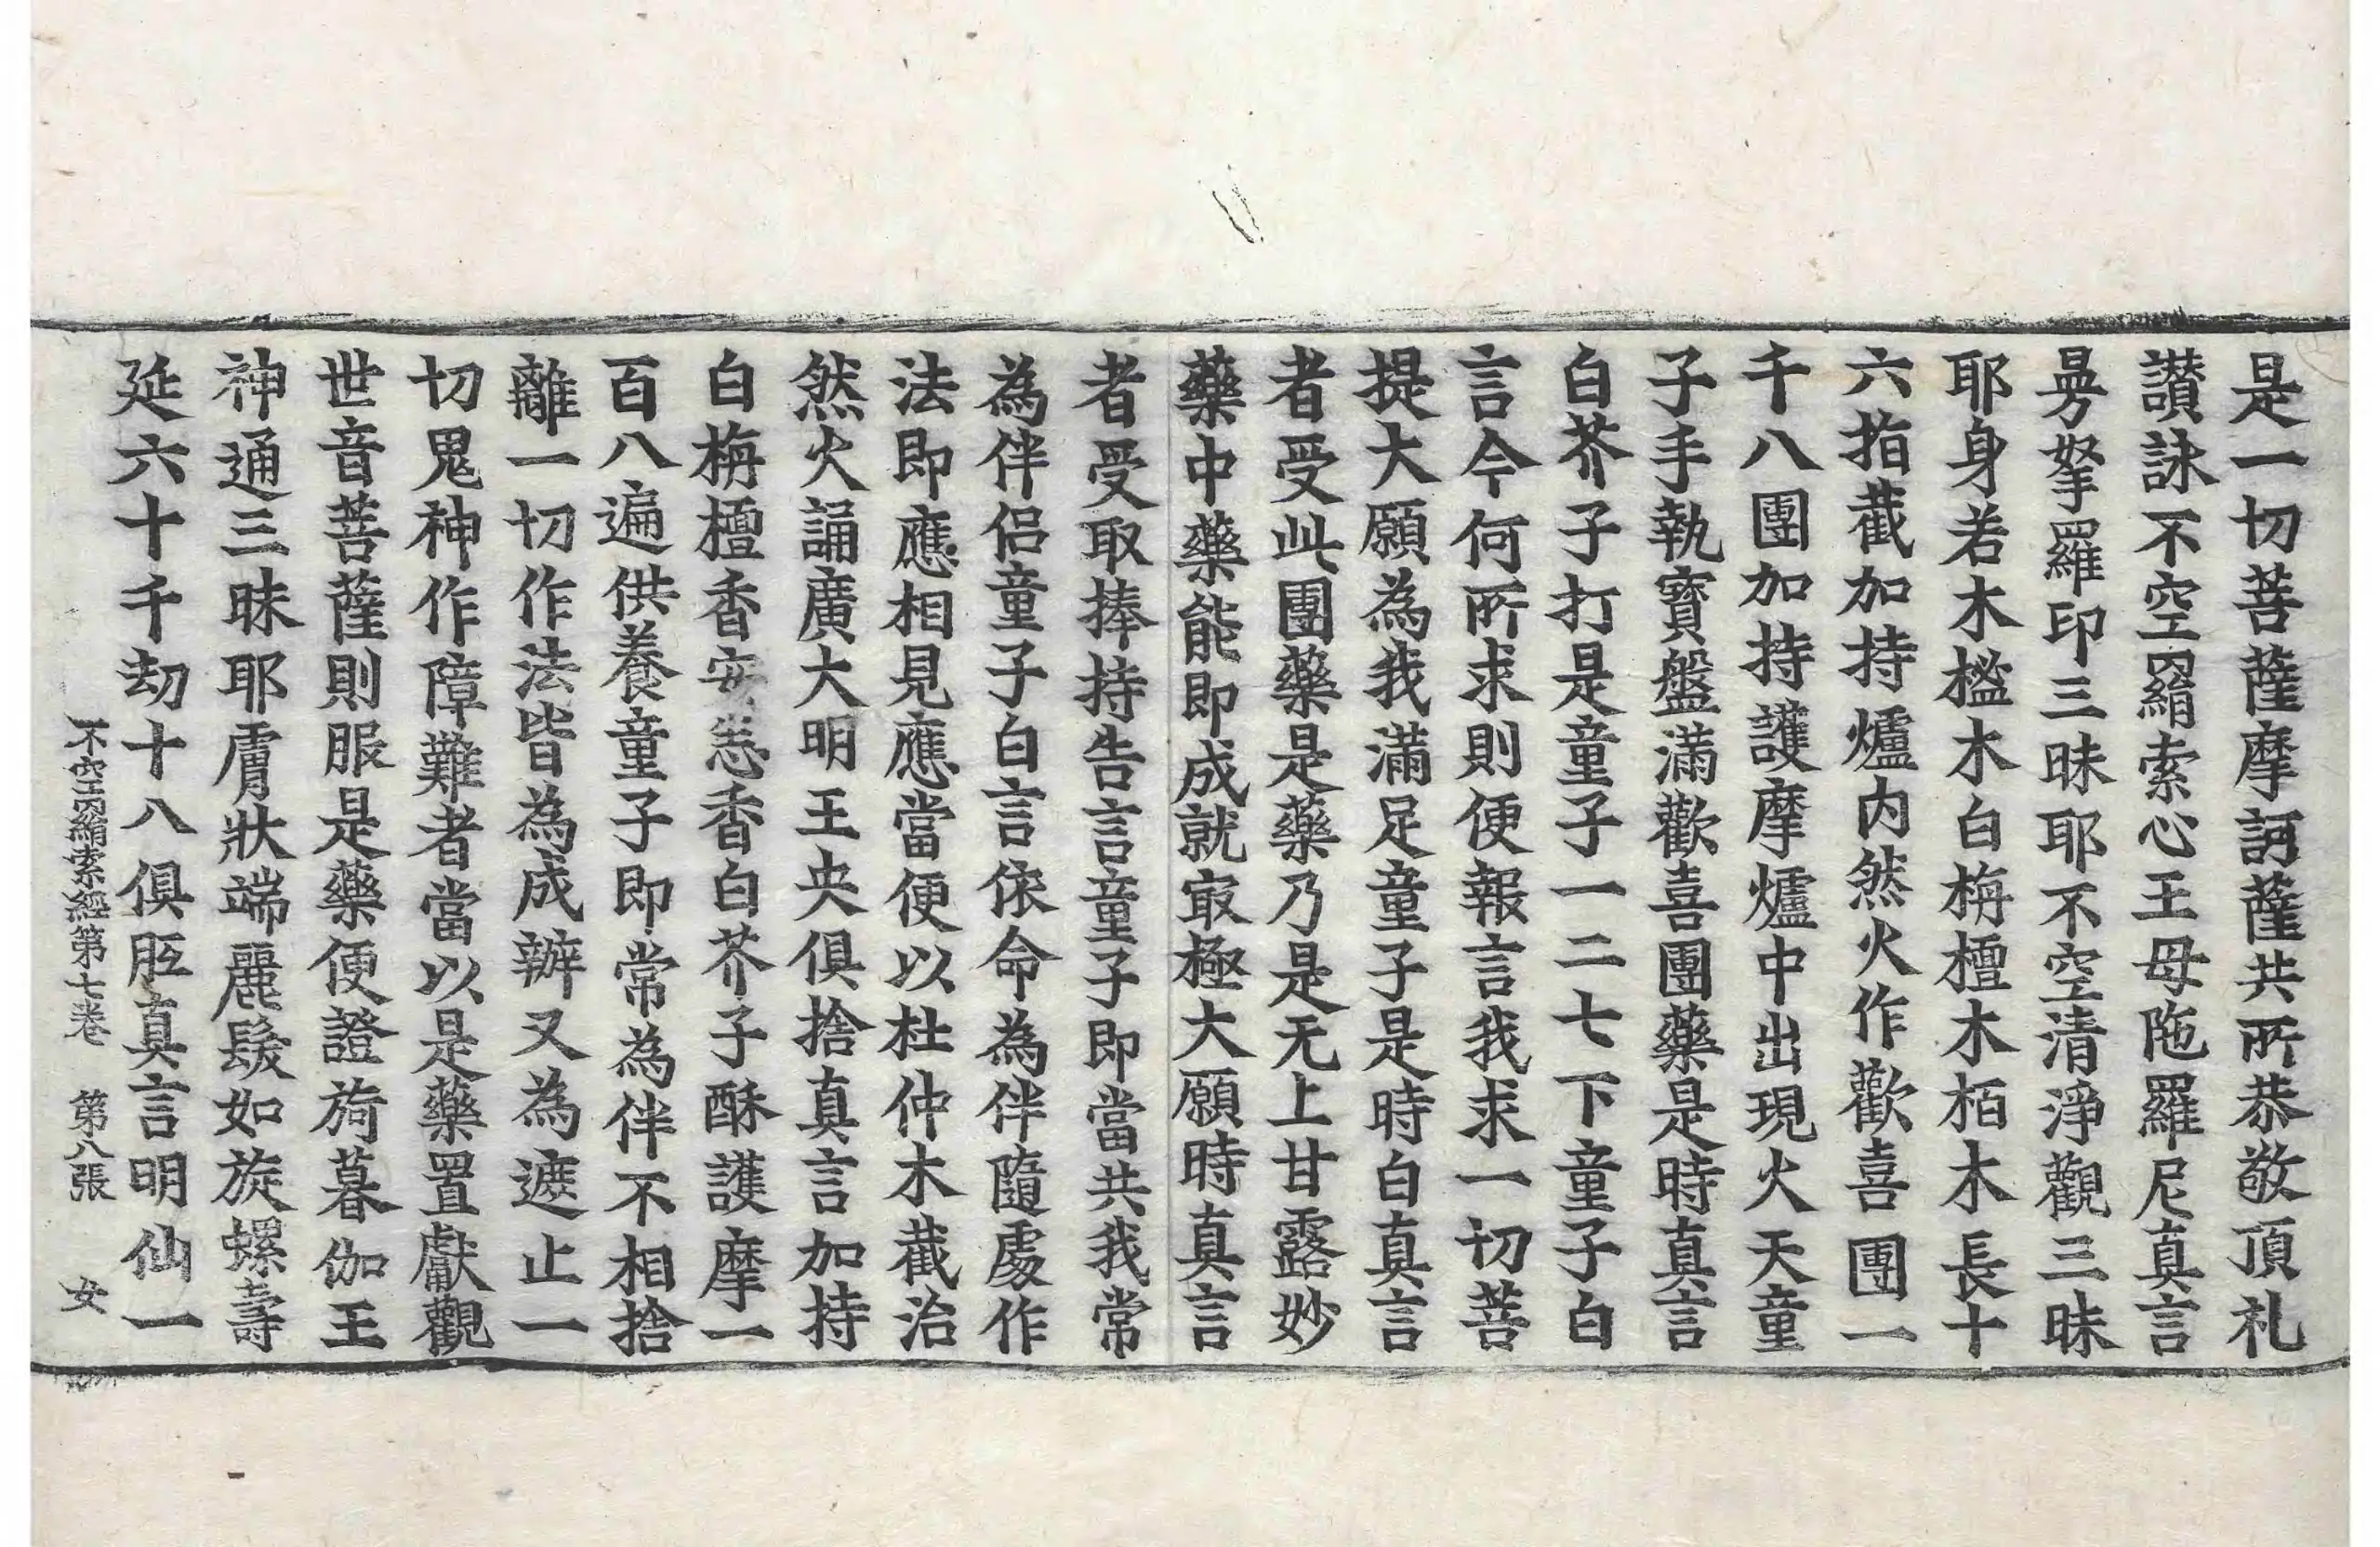 是一切菩薩摩訶薩共所恭敬頂礼
讃詠不空羂索心王母陁羅尼真言
曼拏羅印三昧耶不空清淨觀三昧
耶身若木檻木白栴檀木栢木長十
六指截加持爐内然火作歡喜團一
千八團加持護摩爐中出現火天童
子手執寶盤滿歡喜團藥是時真言
白芥子打是童子一二七下童子白
言今何所求則便報言我求一切菩
提大願為我滿足童子是時白真言
者受此團藥是藥乃是无上甘露妙
藥中藥能即成就㝡極大願時真言
者受取捧持告言童子即當共我常
為伴侣童子白言依命為伴隨處作
法即應相見應當便以杜仲木截治
然火誦廣大明王央俱捨真言加持
白栴檀香安悉香白芥子酥護摩一
百八遍供養童子即常為伴不相捨
離一切作法皆為成辦又為遮止一
切鬼神作障難者當以是藥置獻觀
世音菩薩則服是藥便證旖暮伽王
神通三昧耶膚狀端麗髮如旋螺壽
延六十千劫十八俱胝真言明仙一
不空羂索經第七卷 第八張 女